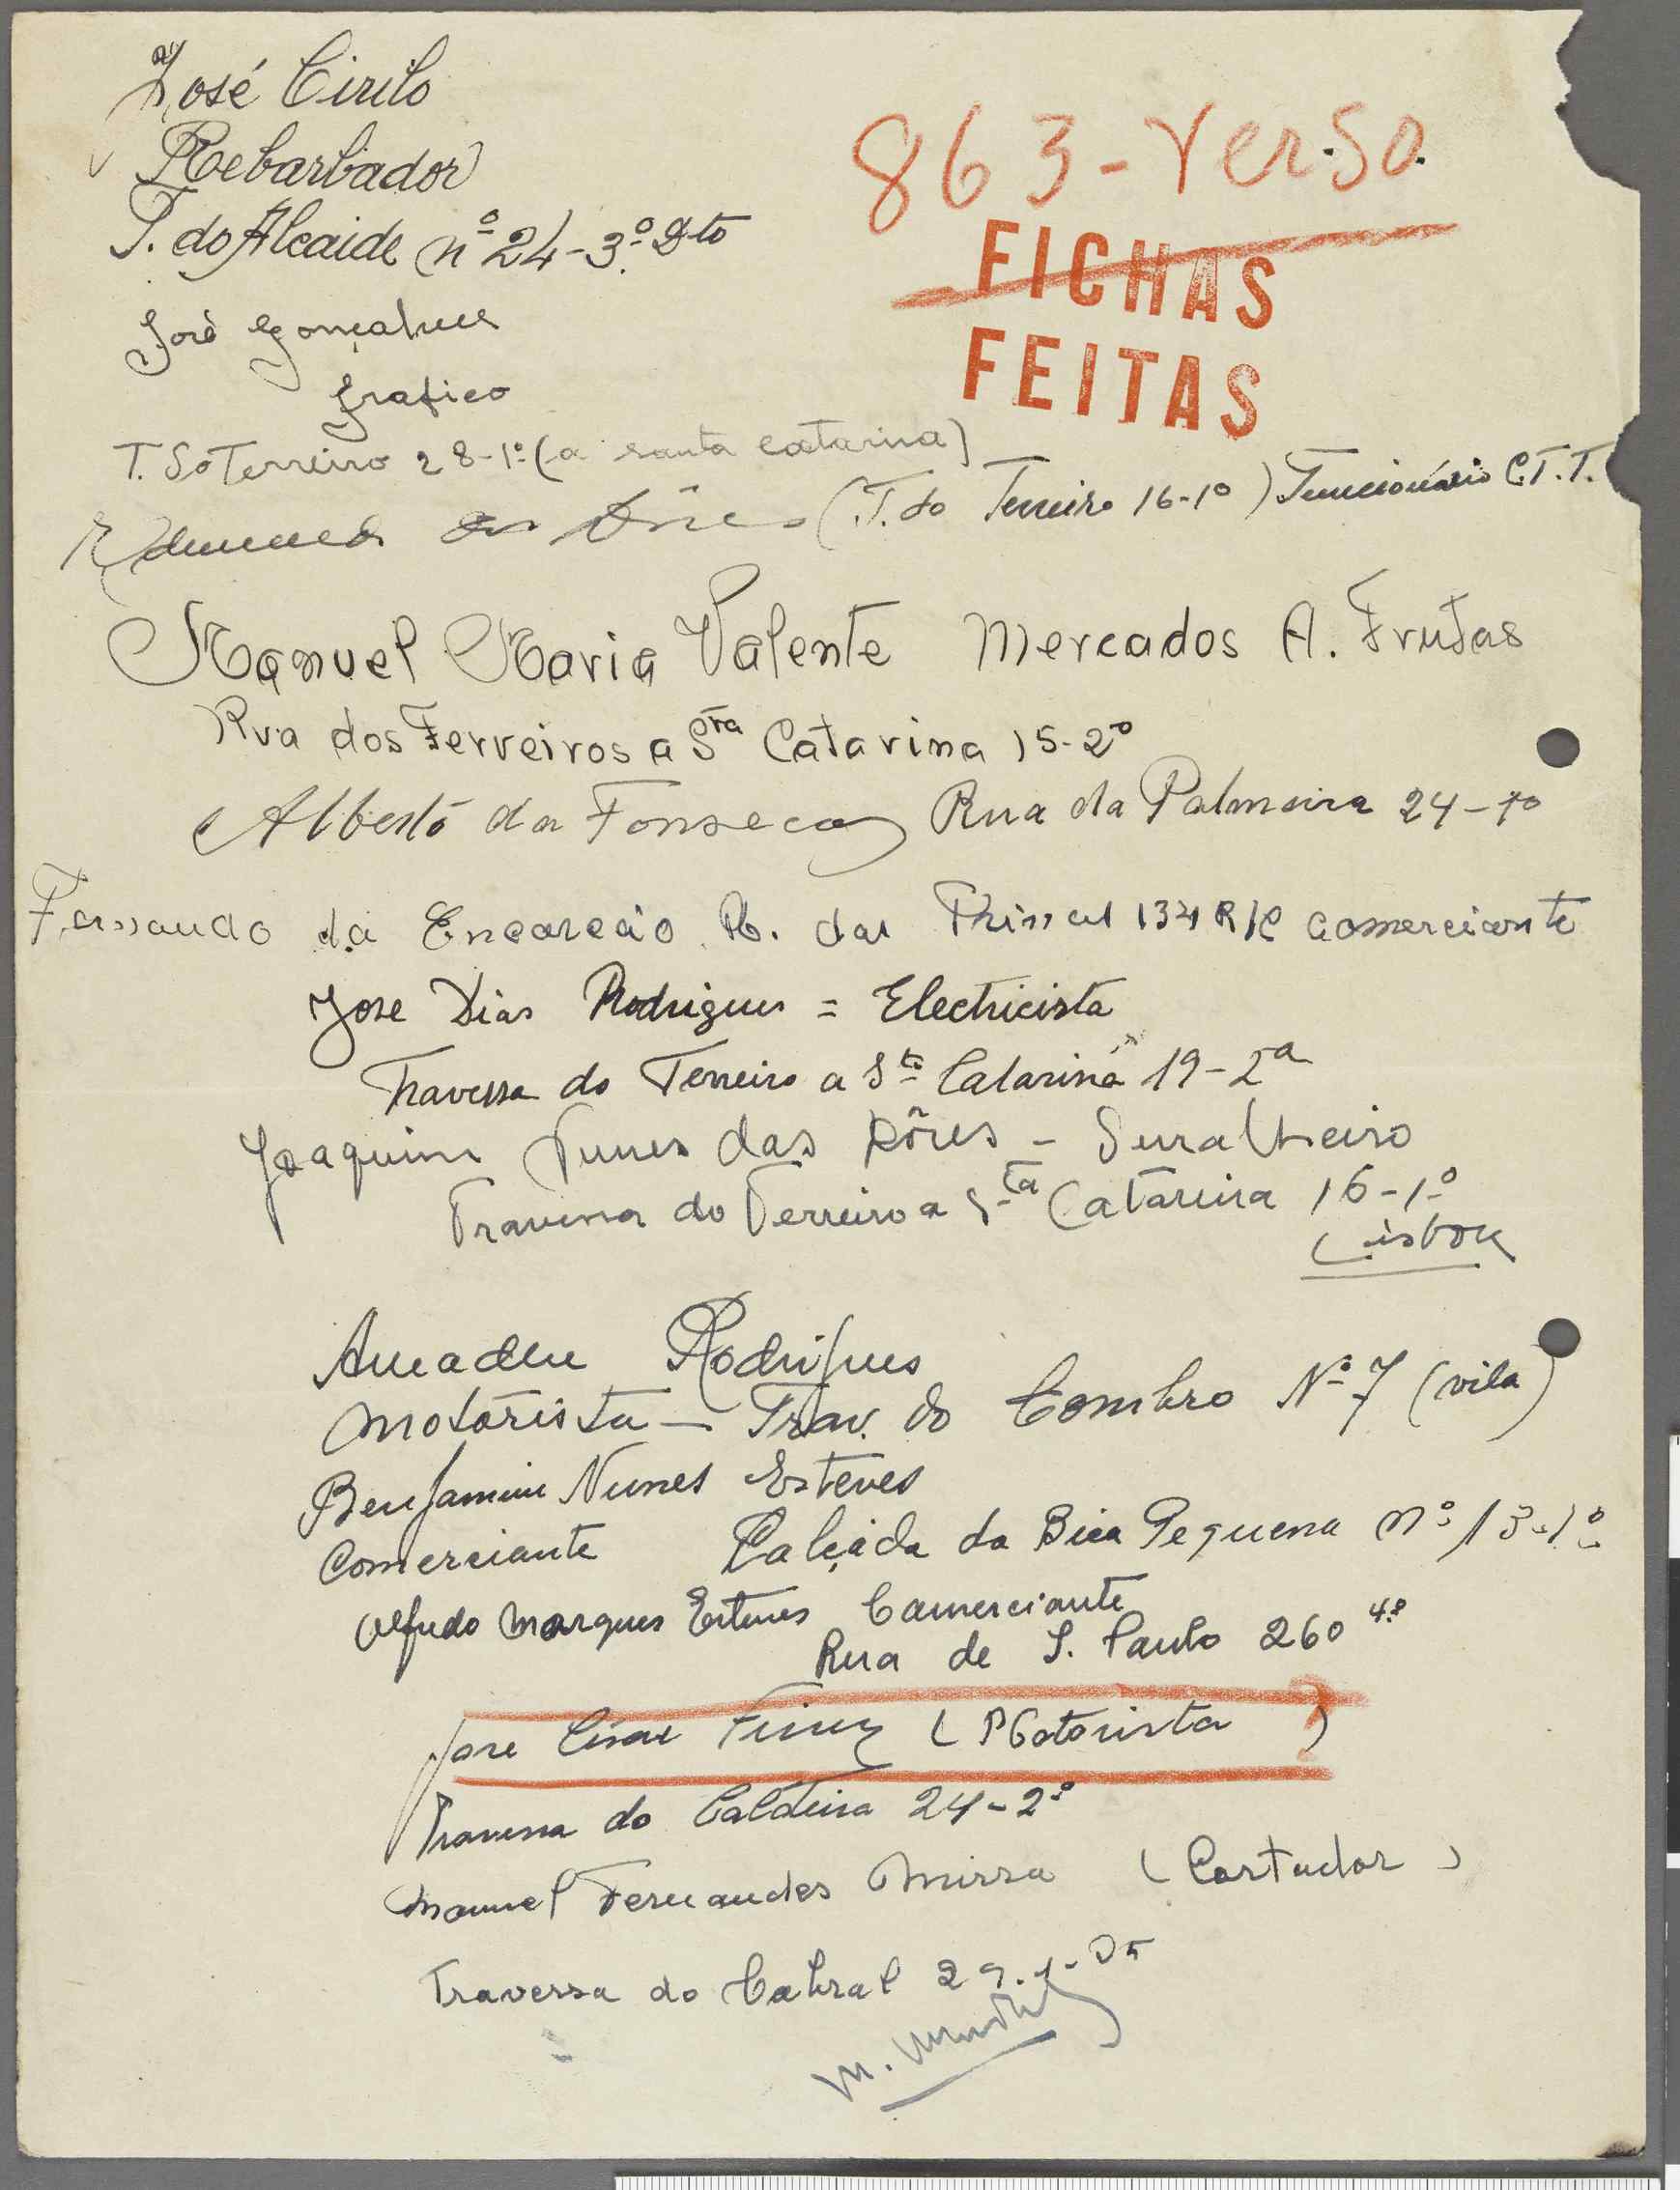 José Cirilo
863-Verso
Rebarbador
T. do Alcaide nº 24-3º Dto
FICHAS
FEITAS
José Gonçalves
Grafico
T. do Terreiro 28-1º (a santa catarina)
(T. do Terreiro 16-1º) Funcionário C.T.T.
Manuel Maria Valente Mercados A. Frutas
Rua dos Ferreiros a Sta Catarina 15-2º
Alberto da Fonseca Rua da Palmeira 24-1º
Fernando da Encarcão R. das Trinas 134 R/C comerciante
Jose Dias Rodrigues = Electricista
Travessa do Terreiro a Sta Catarina 19-2ª
Joaquim Nunes das Dôres - Serralheiro
Travessa do Terreiro a Sta Catarina 16-1º
Lisboa
Amadeu Rodrigues
motorista - Trav. do Combro Nº 7 (vila)
Benjamim Nunes Esteves
Comerciante Calçada da Bica Pequena nº 13-1º
Alfredo Marques Esteves Comerciante
Rua de S. Paulo 260 4º
Jose (Motorista)
Travessa do Caldeira 24-2º
Manuel Fernandes Missa (Cortador)
Travessa do Cabral 29-1-Dt
M.